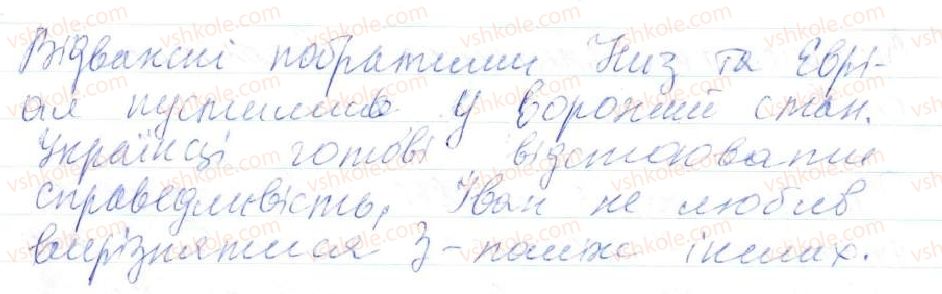 Відважні побратими Низ та Еврі-
ал пустились у ворожий стан.
Українці готові відстоювати
справедливість, Іван не любив
вирізнятися з-поміж інших.